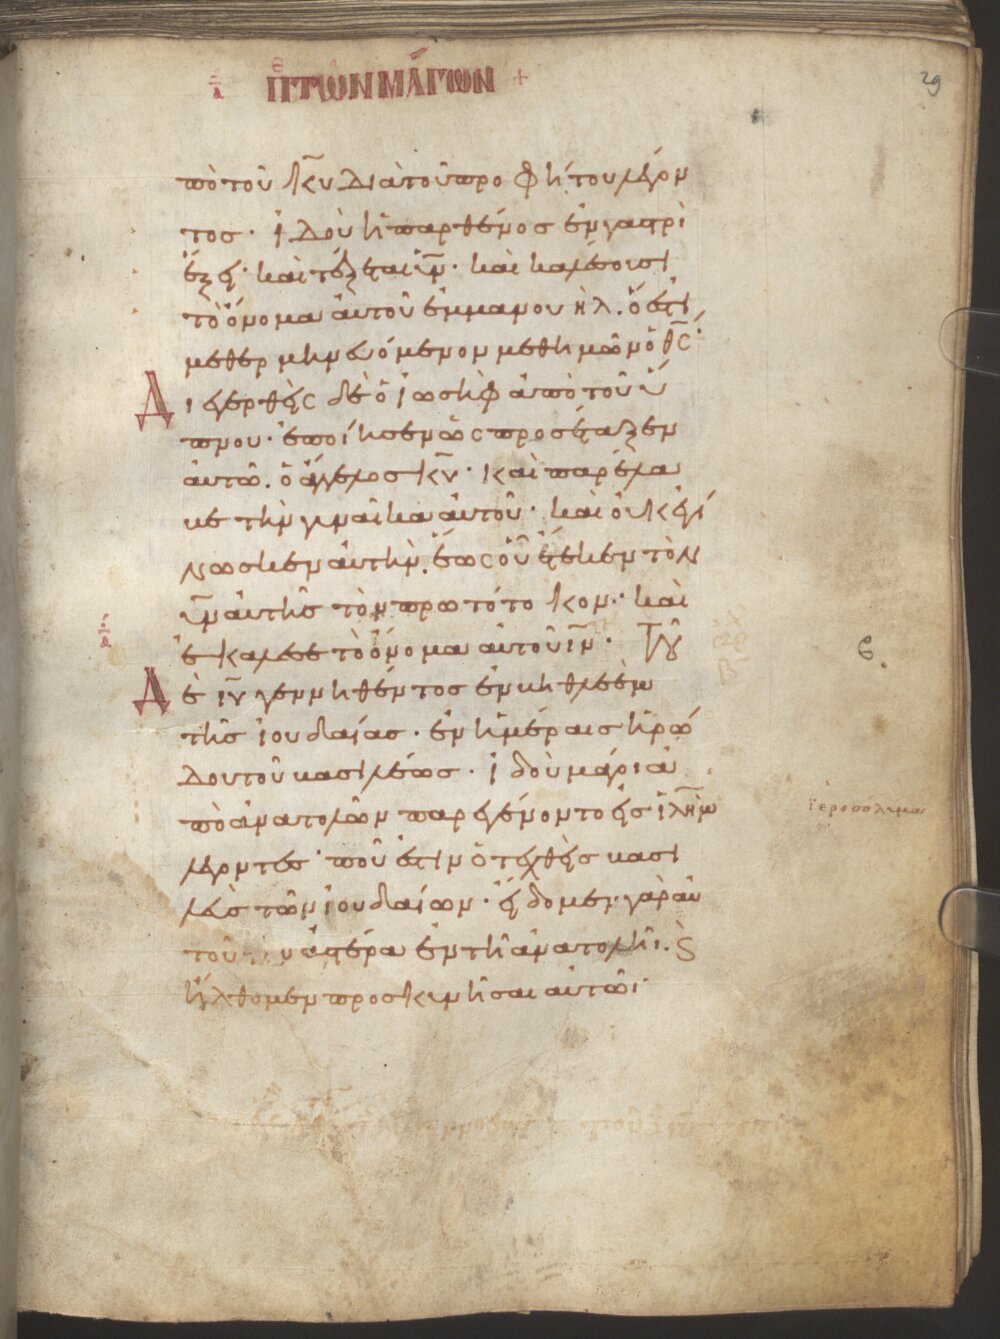 α ΠΕΡΙ ΤΩΝ ΜΑΓΩΝ + 29
πὸ τοῦ κ̅υ̅ διὰ τοῦ προφήτου λέγον
τος · ἰδοὺ ἡ παρθένος ἐν γαστρὶ
ἕξει · καὶ τέξεται υ̅ν̅ · καὶ καλέσουσι
τὸ ὄνομα αὐτοῦ ἐμμανουὴλ . ὅ ἐστι
μεθερμηνευόμενον μεθ ἡμῶν ὁ θ̅ς̅ ·
Διεγερθεὶς δὲ ὁ ἰωσὴφ ἀπὸ τοῦ ὕ
πνου · ἐποίησεν ὡς προσέταξεν
αὐτῶ . ὁ ἄγγελος κ̅υ̅ · καὶ παρέλα
βε τὴν γυναῖκα αὐτοῦ · καὶ οὐκ ἐγί
νωσκεν αὐτὴν . ἕως οὗ ἔτεκεν τὸν
υ̅ν̅ αὐτῆς τὸν πρωτότοκον · καὶ
ἐκάλεσε τὸ ὄνομα αὐτοῦ ι̅ν̅ · Τοῦ
Δὲ ι̅υ̅ γεννηθέντος ἐν βηθλεὲμ
τῆς ἰουδαίας · ἐν ἡμέραις ἡρώ
δου τοῦ βασιλέως · ἰδοὺ μάγοι ἀ
πὸ ἀνατολῶν παρεγένοντο εἰς ἱ̅λ̅η̅μ̅
ἱεροσόλυμα
λέγοντες · ποῦ ἐστιν ὁ τεχθεὶς βασι
λεὺς τῶν ἰουδαίων · εἴδομεν γὰρ αὐ
τοῦ τὸν ἀστέρα ἐν τῆ ἀνατολῆι . ϛ
ἤλθομεν προσκυνῆσαι αὐτῶι ·